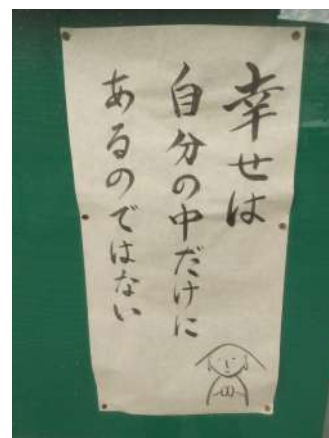 幸せは
自分の中だけに
あるのではない